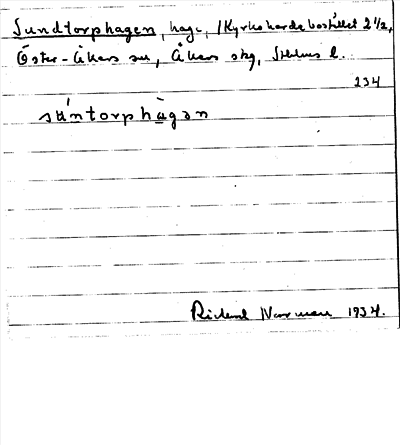 Sundtorphagen, hage, /Kyrkoherdebostället 2 1/2,
Öster-Åkers sn, Åkers skg, Sthlms l.
234
sùntorphàgən
Rickard Norman 1934.